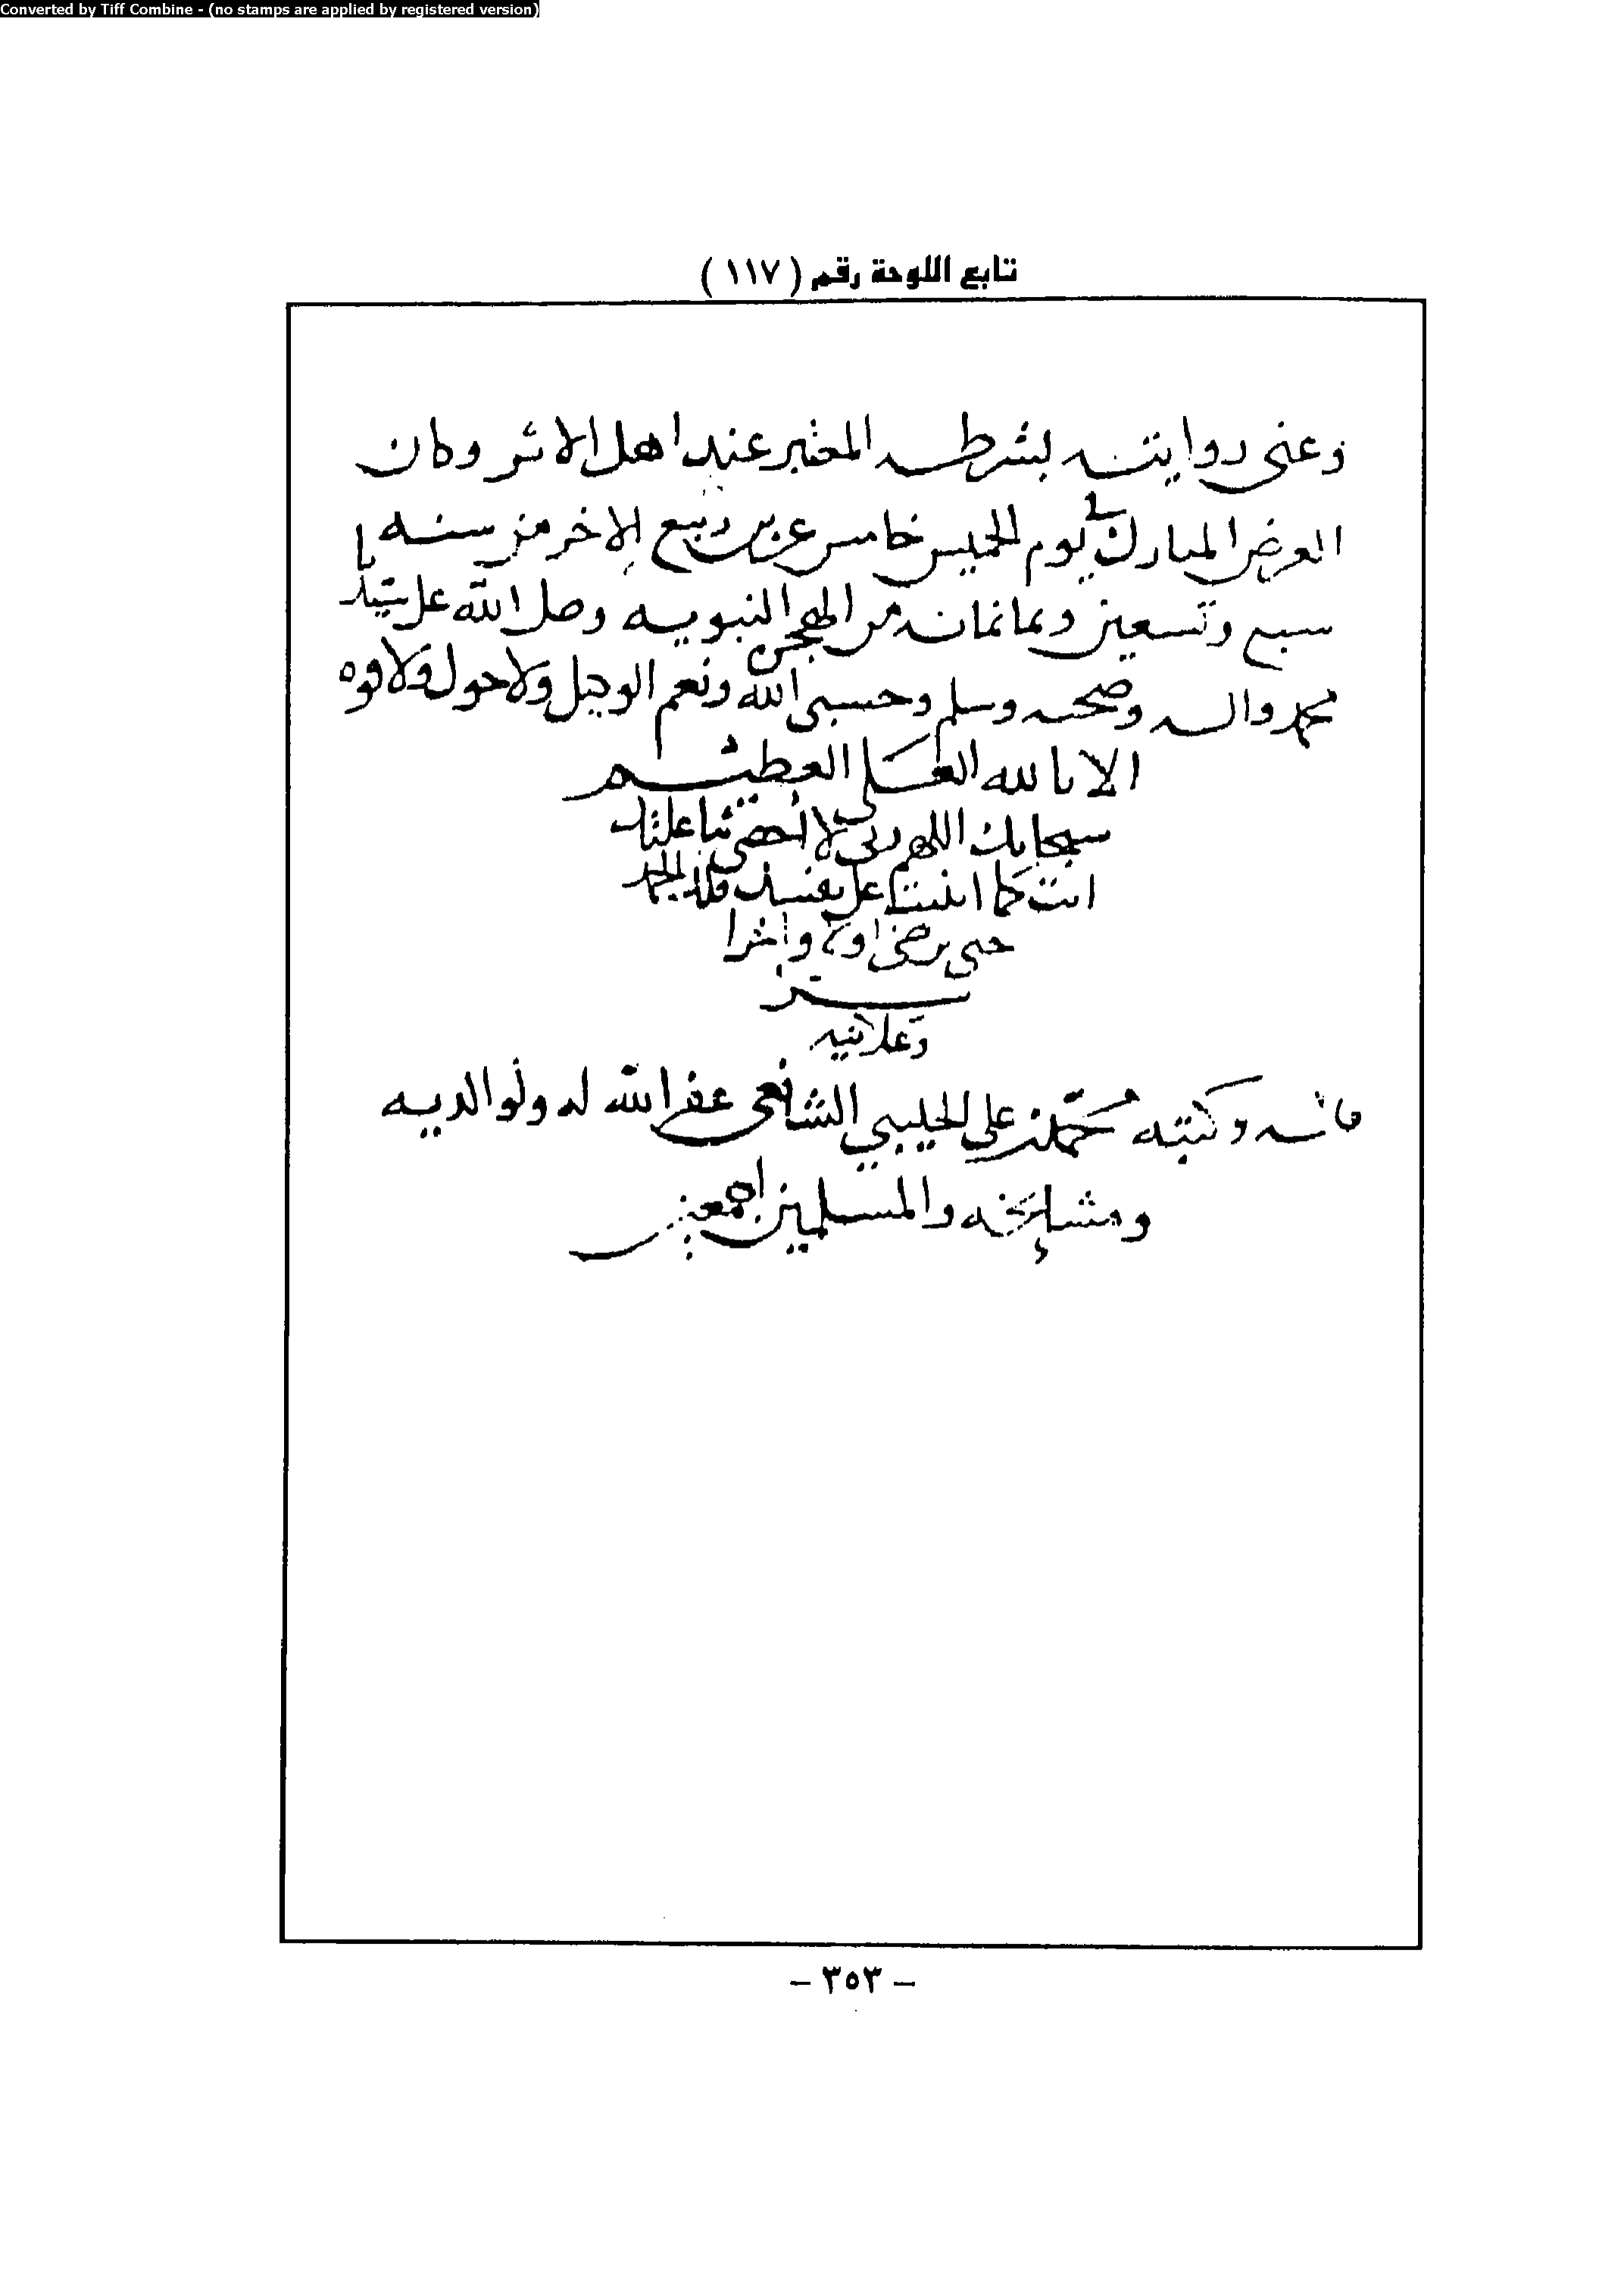 Converted by Tiff Combine - (no stamps are applied by registered version)
تابع اللوحة رقم ( ١١٧ )
وعنى روايته بشرطه المعتبر عند اهل الاثر وكان
العرض المبارك في يوم الخميس خامس عشرين ربيع الاخر من سنه
سبع وتسعين وثمانمائه من الهجره النبويه وصلى الله على سيدنا
محمد واله وصحبه وسلم وحسبي الله ونعم الوكيل ولا حول ولا قوه
الا بالله العلي العظيم
سبحانك اللهم ربي لا احصي ثنا عليك
انت كما اثنيت على نفسك فلك الحمد
حتى ترضى اولا واخرا
سرا
وعلانيه
قاله وكتبه محمد بن علي الحليبي الشافعي غفر الله له ولوالديه
ومشايخه والمسلمين اجمعين
– ٣٥٣ –